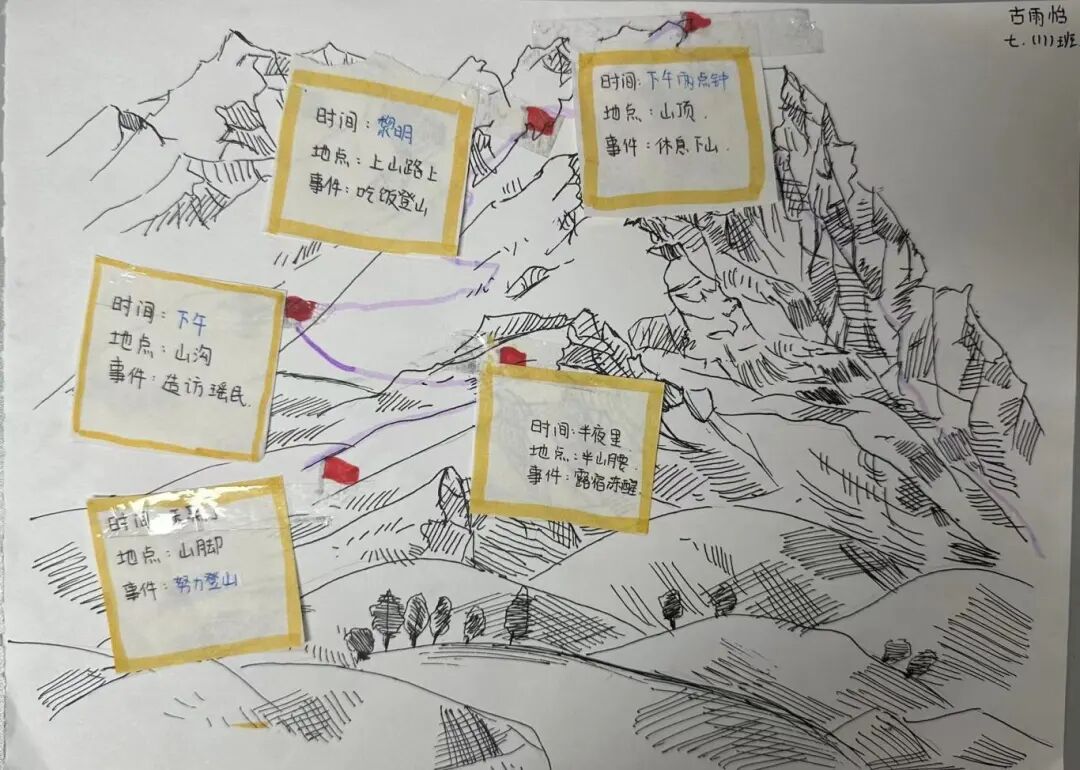 古雨怡
七.(11)班
时间:下午两点钟
地点:山顶.
事件:休息下山.
时间:黎明
地点:上山路上
事件:吃饭登山
时间:下午
地点:山沟
事件:造访瑶民.
时间:半夜里
地点:半山腰.
事件:露宿冻醒.
时间
地点:山脚
事件:努力登山